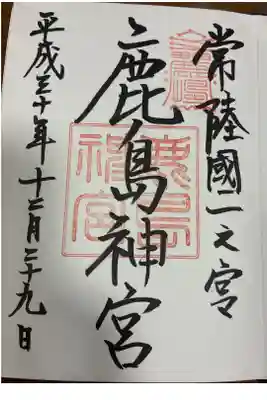 常陸國一之宮
鹿島神宮
鹿島神宮
平成三十年十二月二十九日